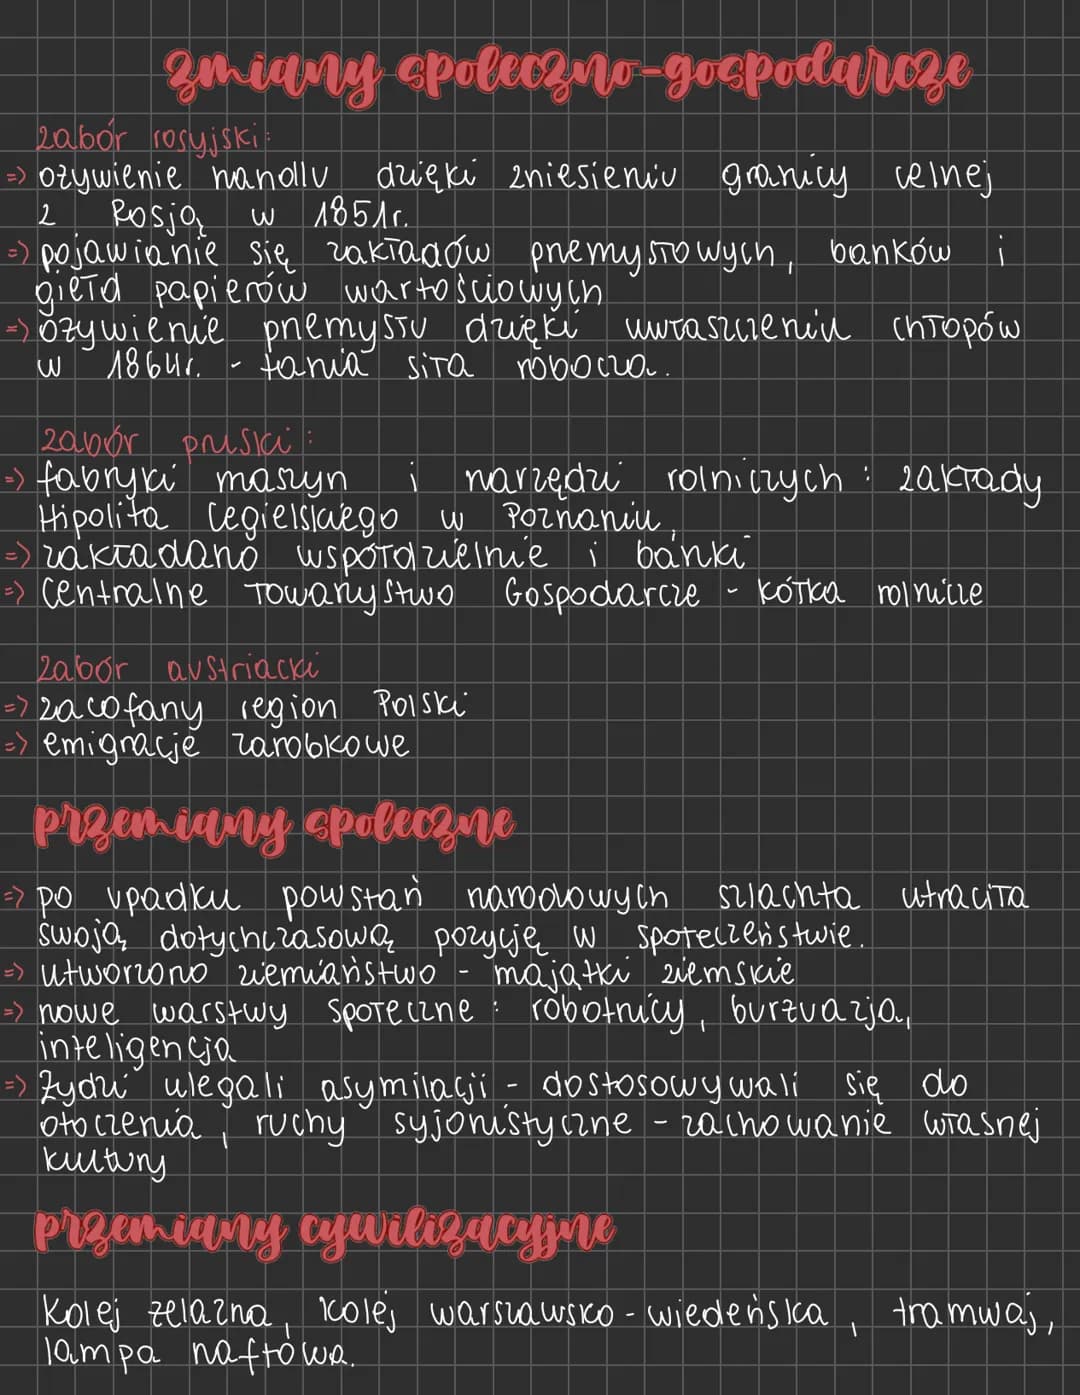 zmiany społeczno-gospodarcze
zabór rosyjski:
=> ożywienie handlu dzięki zniesieniu granicy celnej
z Rosją w 1851r.
=> pojawianie się zakładów przemysłowych, banków i
giełd papierów wartościowych
=> ożywienie przemysłu dzięki uwłaszczeniu chłopów
w 1864r. - tania siła robocza.
zabór pruski:
=> fabryki maszyn i narzędzi rolniczych: zakłady
Hipolita Cegielskiego w Poznaniu,
=> zakładano współdzielnie i banki
=> Centralne Towarzystwo Gospodarcze - kółka rolnicze
zabór austriacki
=> zacofany region Polski
=> emigracje zarobkowe
przemiany społeczne
=> po upadku powstań narodowych szlachta utraciła
swoją dotychczasową pozycję w społeczeństwie.
=> utworzono ziemiaństwo - majątki ziemskie
=> nowe warstwy społeczne: robotnicy, burżuazja,
inteligencja
=> Żydzi ulegali asymilacji - dostosowywali się do
otoczenia, ruchy syjonistyczne - zachowanie własnej
kultury
przemiany cywilizacyjne
Kolej żelazna, kolej warszawsko-wiedeńska, tramwaj,
lampa naftowa.